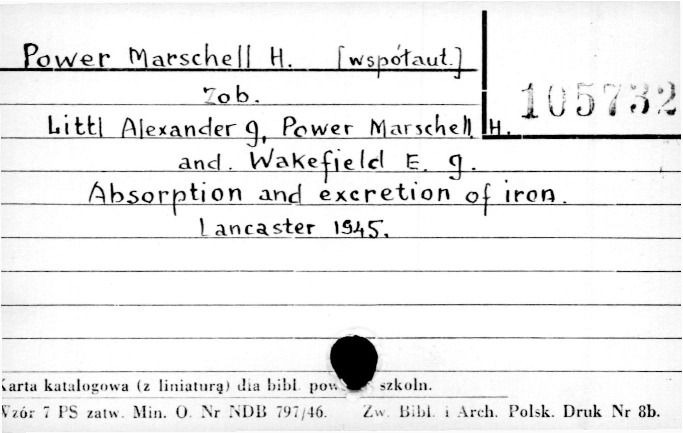 Power Marschell H. [współaut.]
105732
zob.
Littl Alexander g, Power Marschell H.
and. Wakefield E. g.
Absorption and excretion of iron.
Lancaster 1945.
Karta katalogowa (z liniaturą) dla bibl. szkoln.
Wzór 7 PS zatw. Min. O. Nr NDB 797/46. Zw. Bibl. i Arch. Polsk. Druk Nr 8b.